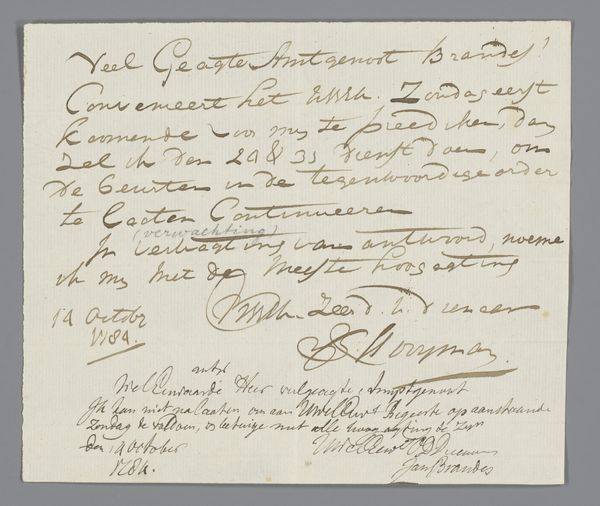 Veel Geagte Amtgenoot Brandes!
Convenieert het UWEh. Zondag eerst
koomende voor my te preediken, dan
zel ik den 24 & 31 dienst doen, om
De beurten in de tegenwoordige order
te Laaten Continueeren
(verwachting)
In verwagting van antwoord, noeme
ik my met de meeste hoogagting
UWEh. Zeer d. d. dienaar
14 Octobr
1784.
J. Hooyman.
antw
WelEerwaarde Heer veelgeagte Amptgenoot
Ik kan niet nalaaten om aan UWelEerw Begeerte op aanstaande
Zondag te voldoen, betuige met alle hoogagting te Zyn
den 14 october
1784.
UWelEerw D Dienaar
Jan Brandes